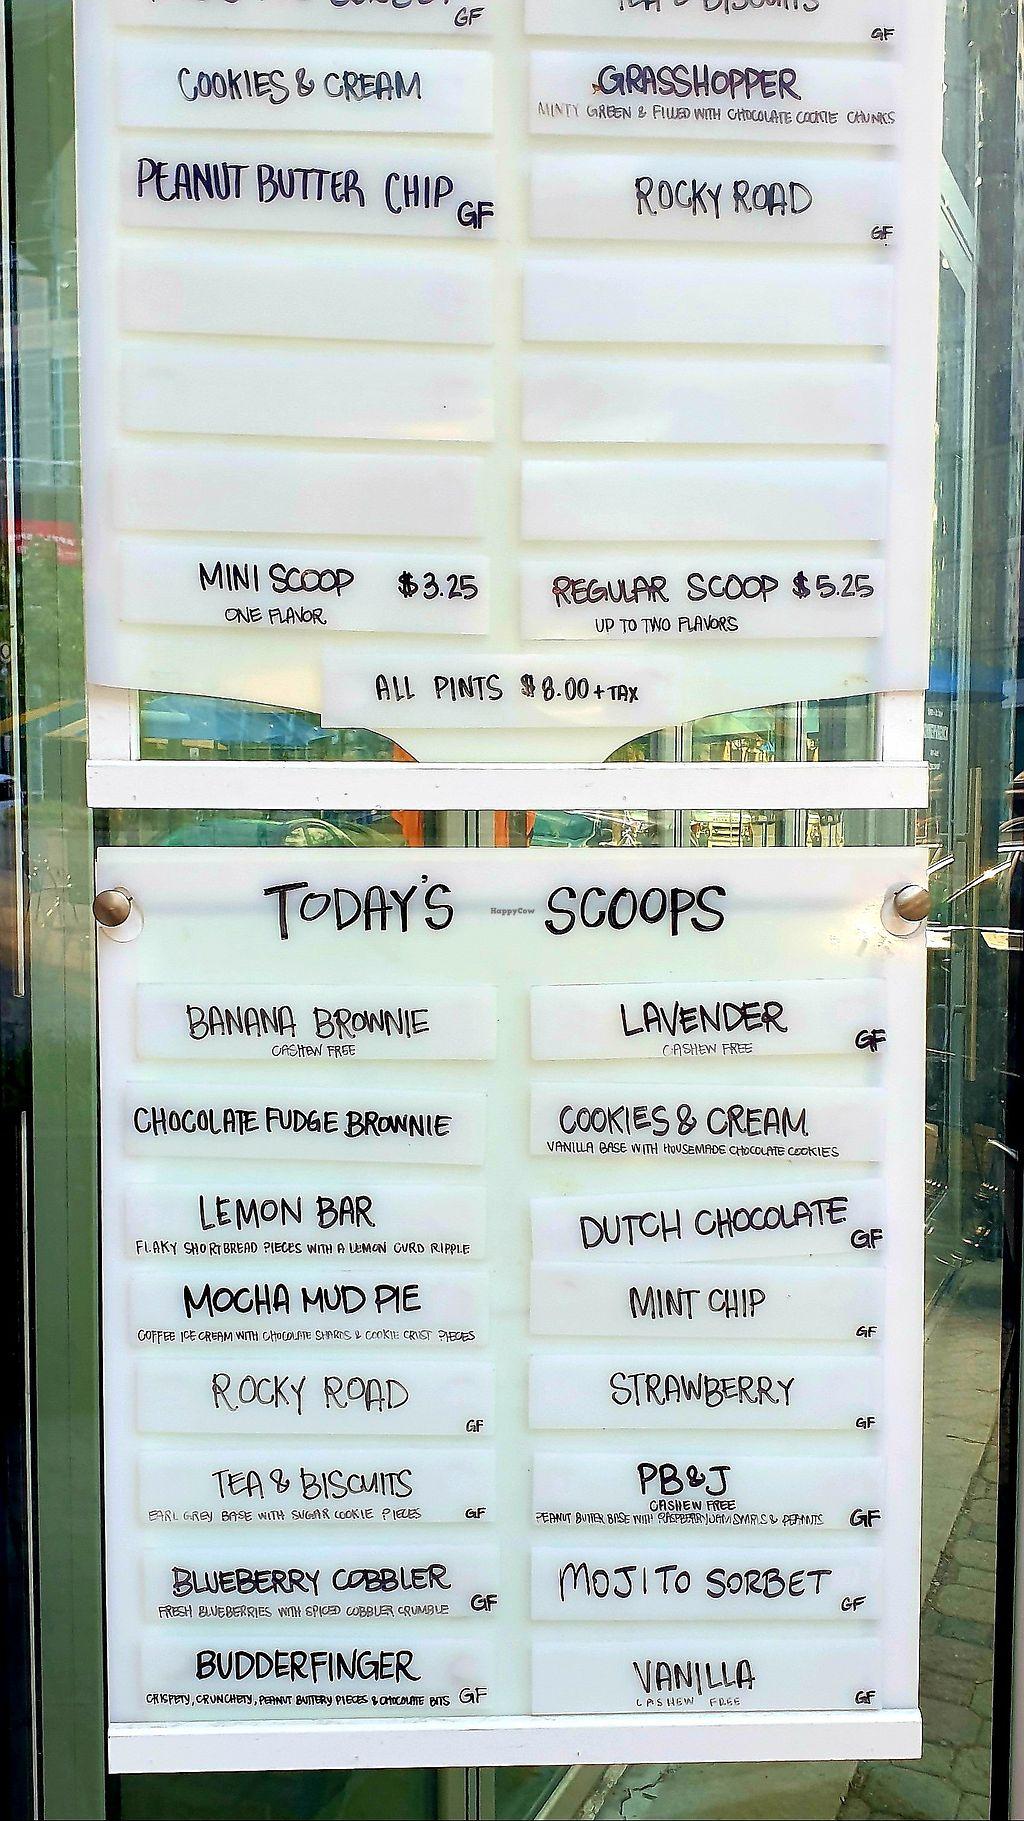 GF
TEA & BISCUITS
GF
COOKIES & CREAM
GRASSHOPPER
MINTY GREEN & FILLED WITH CHOCOLATE COOKIE CHUNKS
PEANUT BUTTER CHIP GF
ROCKY ROAD
GF
MINI SCOOP $3.25
ONE FLAVOR
REGULAR SCOOP $5.25
UP TO TWO FLAVORS
ALL PINTS $8.00 + TAX
TODAY'S SCOOPS
HappyCow
BANANA BROWNIE
CASHEW FREE
LAVENDER
CASHEW FREE
GF
CHOCOLATE FUDGE BROWNIE
COOKIES & CREAM
VANILLA BASE WITH HOUSEMADE CHOCOLATE COOKIES
LEMON BAR
FLAKY SHORTBREAD PIECES WITH A LEMON CURD RIPPLE
DUTCH CHOCOLATE
GF
MOCHA MUD PIE
COFFEE ICE CREAM WITH CHOCOLATE SHARDS & COOKIE CRUST PIECES
MINT CHIP
GF
ROCKY ROAD
GF
STRAWBERRY
GF
TEA & BISCUITS
EARL GREY BASE WITH SUGAR COOKIE PIECES GF
PB&J
CASHEW FREE
PEANUT BUTTER BASE WITH RASPBERRY JAM SWIRLS & PEANUTS GF
BLUEBERRY COBBLER
FRESH BLUEBERRIES WITH SPICED COBBLER CRUMBLE GF
MOJITO SORBET
GF
BUDDERFINGER
CRISPETY, CRUNCHETY, PEANUT BUTTERY PIECES & CHOCOLATE BITS GF
VANILLA
CASHEW FREE
GF